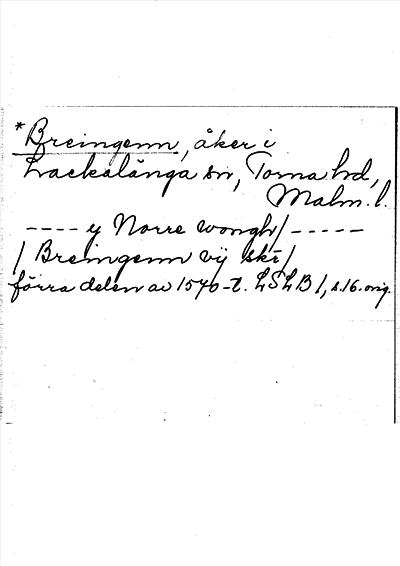 * Breingenn, åker i
Lackalänga sn, Torna hd,
Malm. l.
---- y Norre wongh/ -----
/ Breingenn vÿ skr̄ /
förra delen av 1570-t. LSLB 1, s. 16. orig.